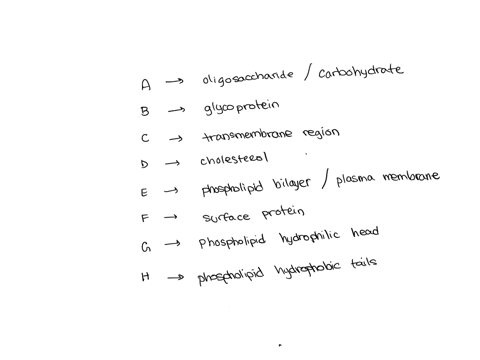 A → oligosaccharide / carbohydrate
B → glycoprotein
C → transmembrane region
D → cholesterol
E → phospholipid bilayer / plasma membrane
F → surface protein
G → phospholipid hydrophilic head
H → phospholipid hydrophobic tails